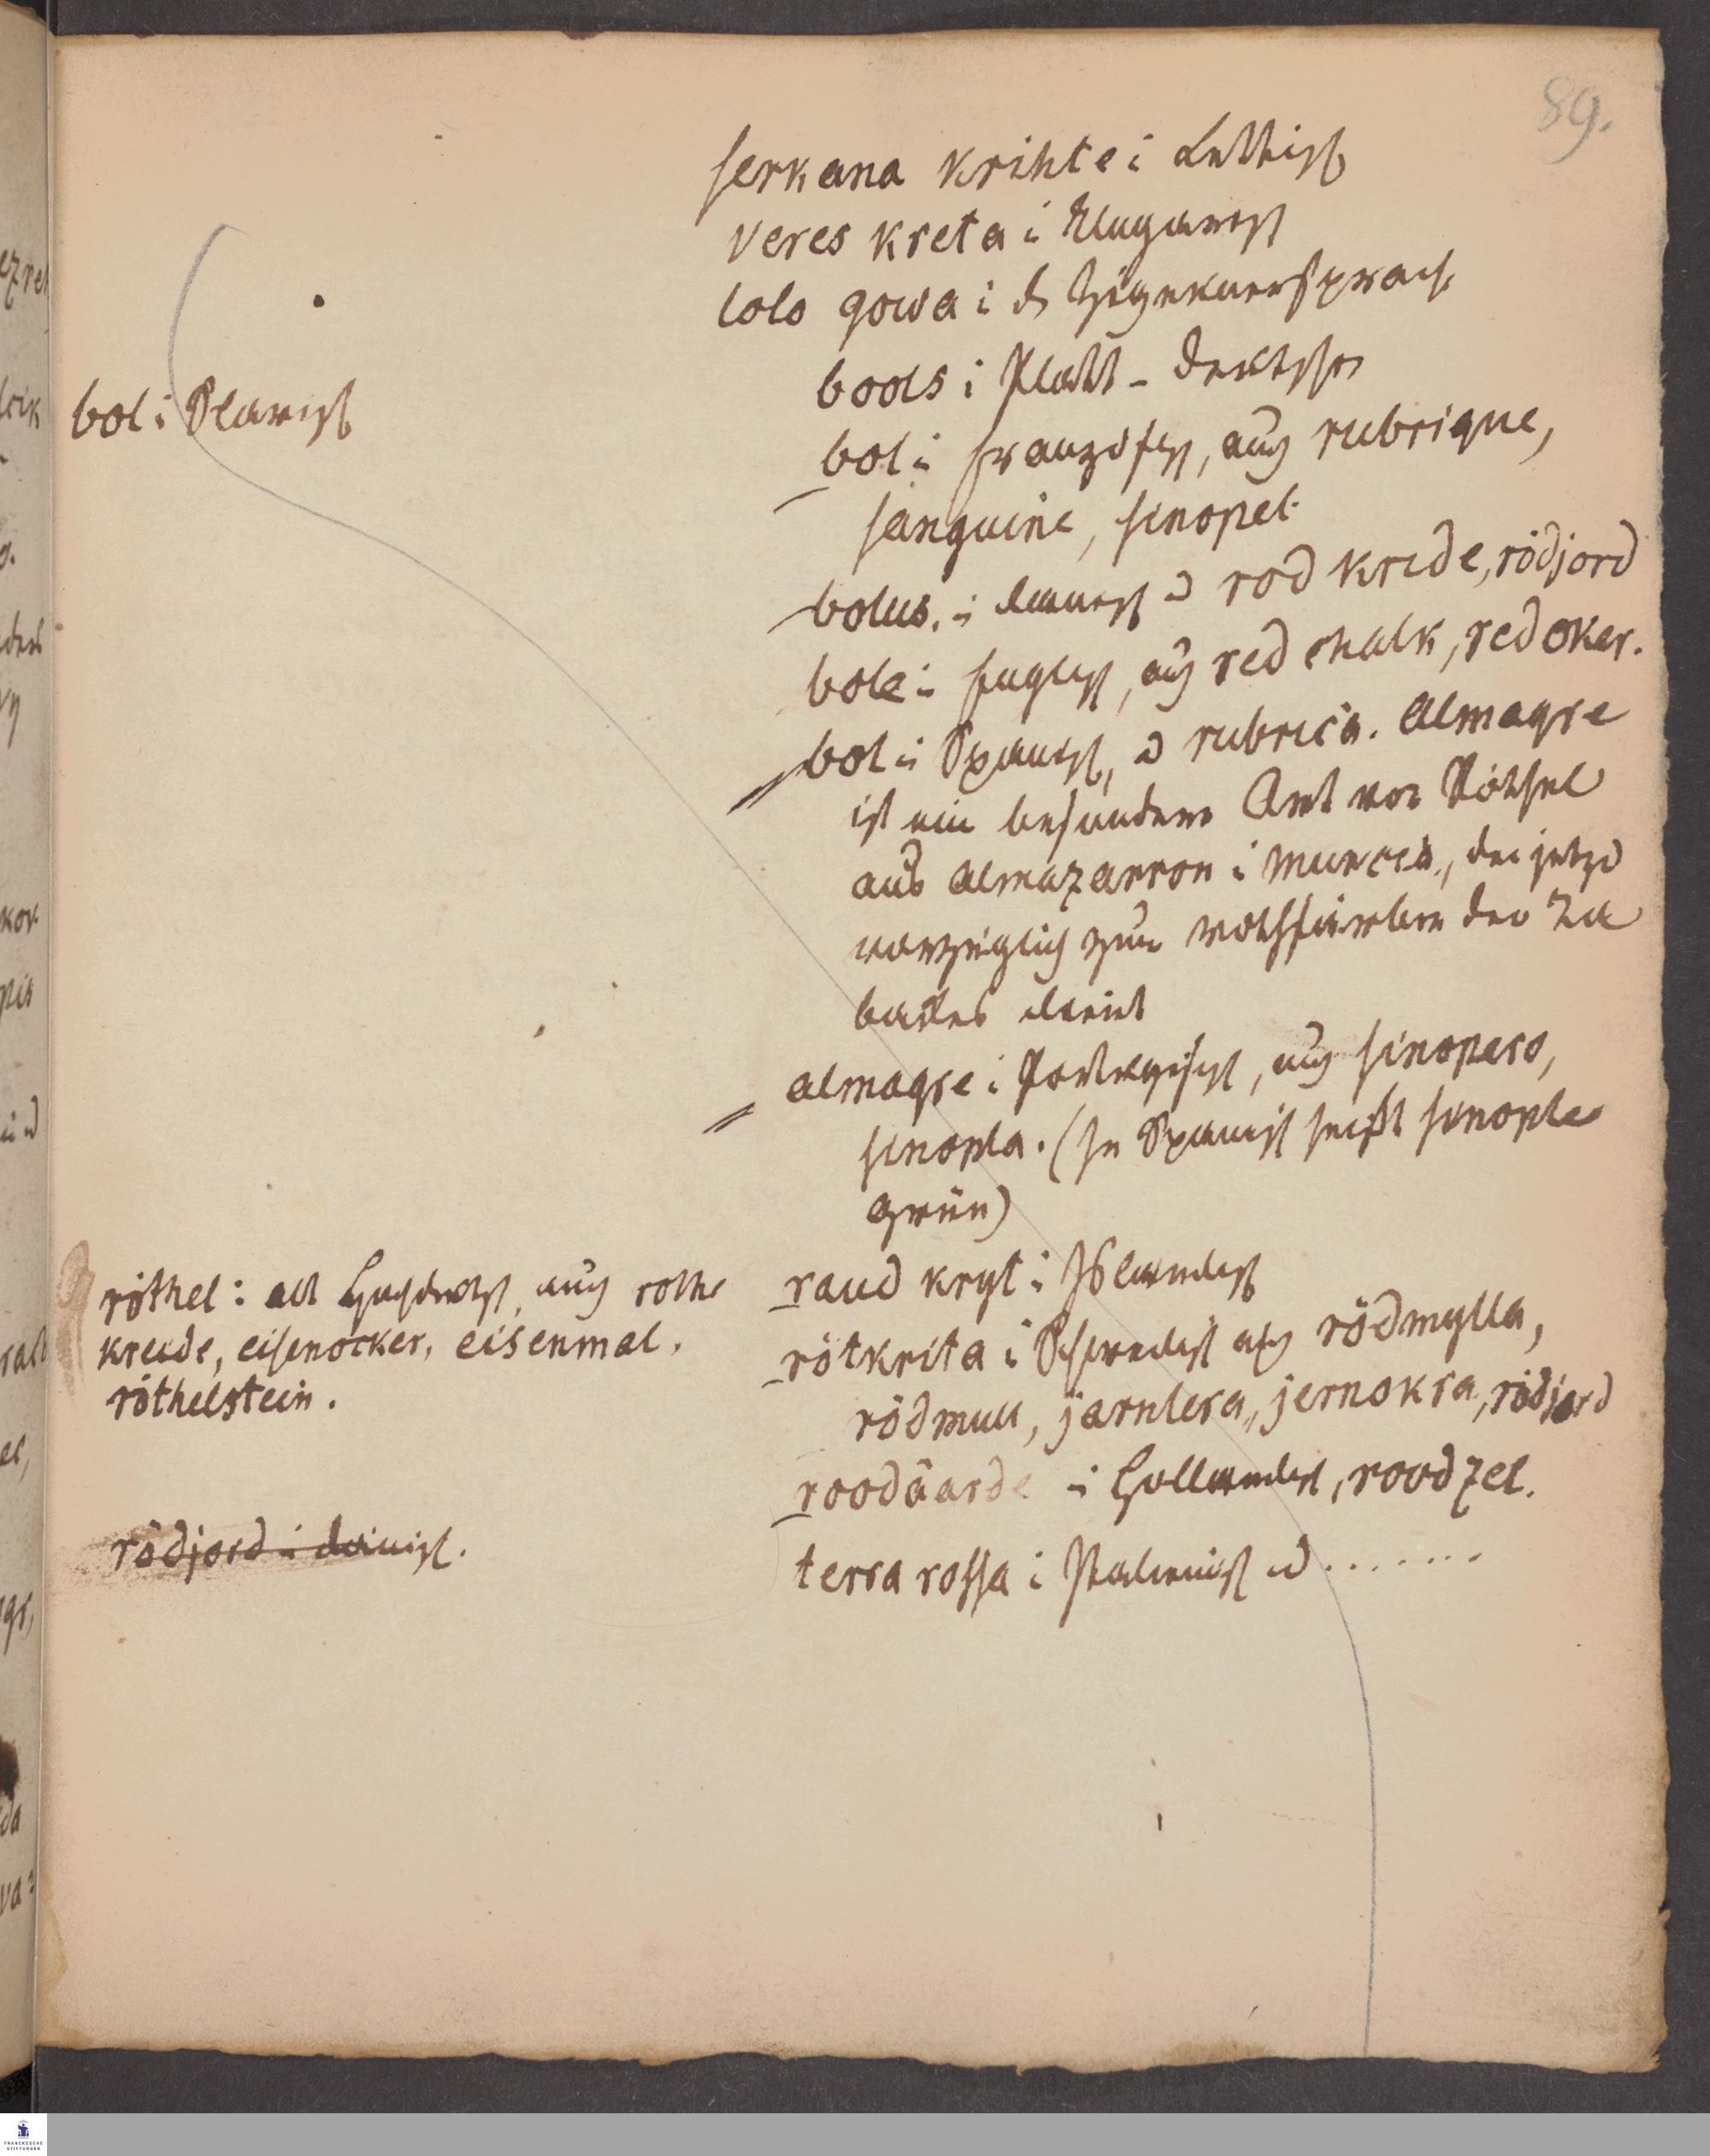 89.
serkana krihte i Lettisch
veres kreta i Ungarisch
lolo gowa i d Zigeunersprach
bools i Platt-Deutschen
bol i Slawisch
bol i französisch, auch rubrique,
sanguine, sinopel.
bolus. i dänisch u rod kride, rödjord
bole i Englisch, auch red chalk, red oker.
bol i Spanisch, u rubrica. Almagre
ist eine besondere Art von Röthel
aus Almazarron i Murcia, der jetzo
vorzüglich zum rothfärben des Ta
backes dient
almagre i Portugisisch, auch sinopero,
sinopla. (In Spanisch heißt sinople
grün)
röthel i alt Hochdeutsch, auch rothe
kreide, eisenocker, eisenmal,
röthelstein.
raud kryt i Islandisch
rötkrita i Schwedisch auch rödmylla,
rödmull, järnlera, jernokra, rödjord
roodäarde i Hollandisch, roodzel.
rödjord i dänisch.
terra rossa i Italienisch u .......
FRANCKESCHE
STIFTUNGEN